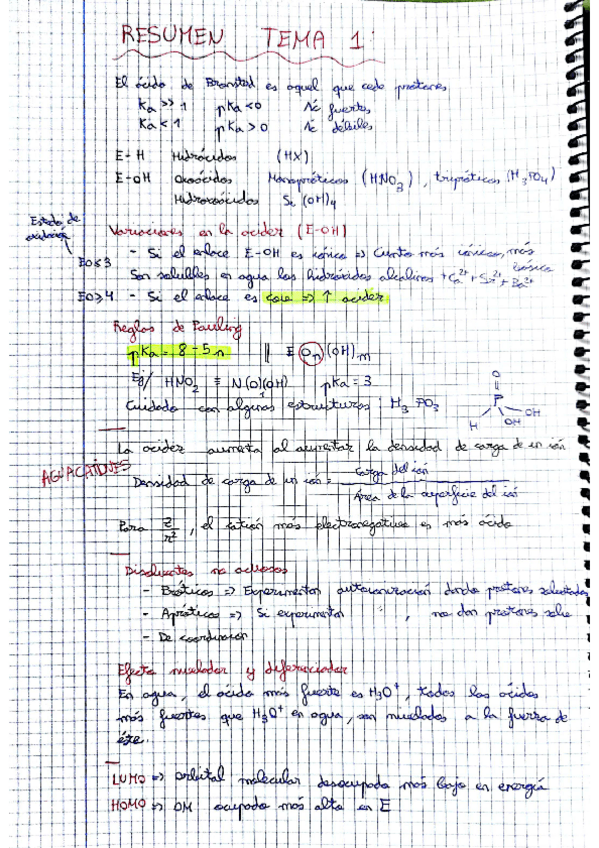 RESUMEN TEMA 1:
El ácido de Bronsted es aquel que cede protones
Ka >> 1 pKa < 0 Ác fuertes
Ka < 1 pKa > 0 Ác débiles
E-H Hidrácidos (HX)
E-OH Oxoácidos Monopróticos (HNO3), tripróticos (H3PO4)
Hidroxoácidos Si(OH)4
Estado de oxidación
Variaciones en la acidez (E-OH)
EO≤3 - Si el enlace E-OH es iónico => Cuanto más iónico, más básico
Son solubles en agua los hidróxidos alcalinos + Ca2+ + Sr2+ + Ba2+
EO≥4 - Si el enlace es cov => ↑ acidez
Reglas de Pauling
pKa = 8-5n || E On (OH)m
Ej/ HNO2 ≡ N(O)(OH) pKa = 3
1
Cuidado con algunas estructuras: H3PO3
O
P
H OH OH
La acidez aumenta al aumentar la densidad de carga de un ión
AQUACATIONES
Densidad de carga de un ión = Carga del ión / Área de la superficie del ión
Para z/r2, el catión más electronegativo es más ácido
Disolventes no acuosos
- Próticos => Experimentan autoionización dando protones solvatados
- Apróticos => Si experimentan ", no dan protones solv
- De coordinación
Efecto nivelador y diferenciador
En agua, el ácido más fuerte es H3O+, todos los ácidos
más fuertes que H3O+ en agua, son nivelados a la fuerza de
éste.
LUMO => orbital molecular desocupado más bajo en energía
HOMO => OM ocupado más alto en E